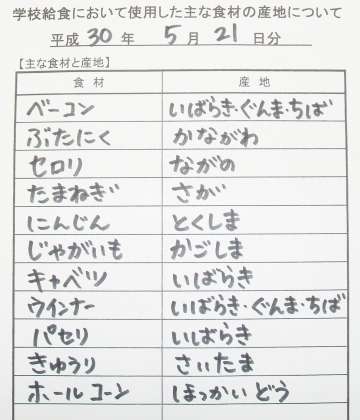 学校給食において使用した主な食材の産地について
平成 30 年 5 月 21 日分
【主な食材と産地】
食 材 産 地
ベーコン いばらき・ぐんま・ちば
ぶたにく かながわ
セロリ ながの
たまねぎ さが
にんじん とくしま
じゃがいも かごしま
キャベツ いばらき
ウインナー いばらき・ぐんま・ちば
パセリ いばらき
きゅうり さいたま
ホールコーン ほっかいどう